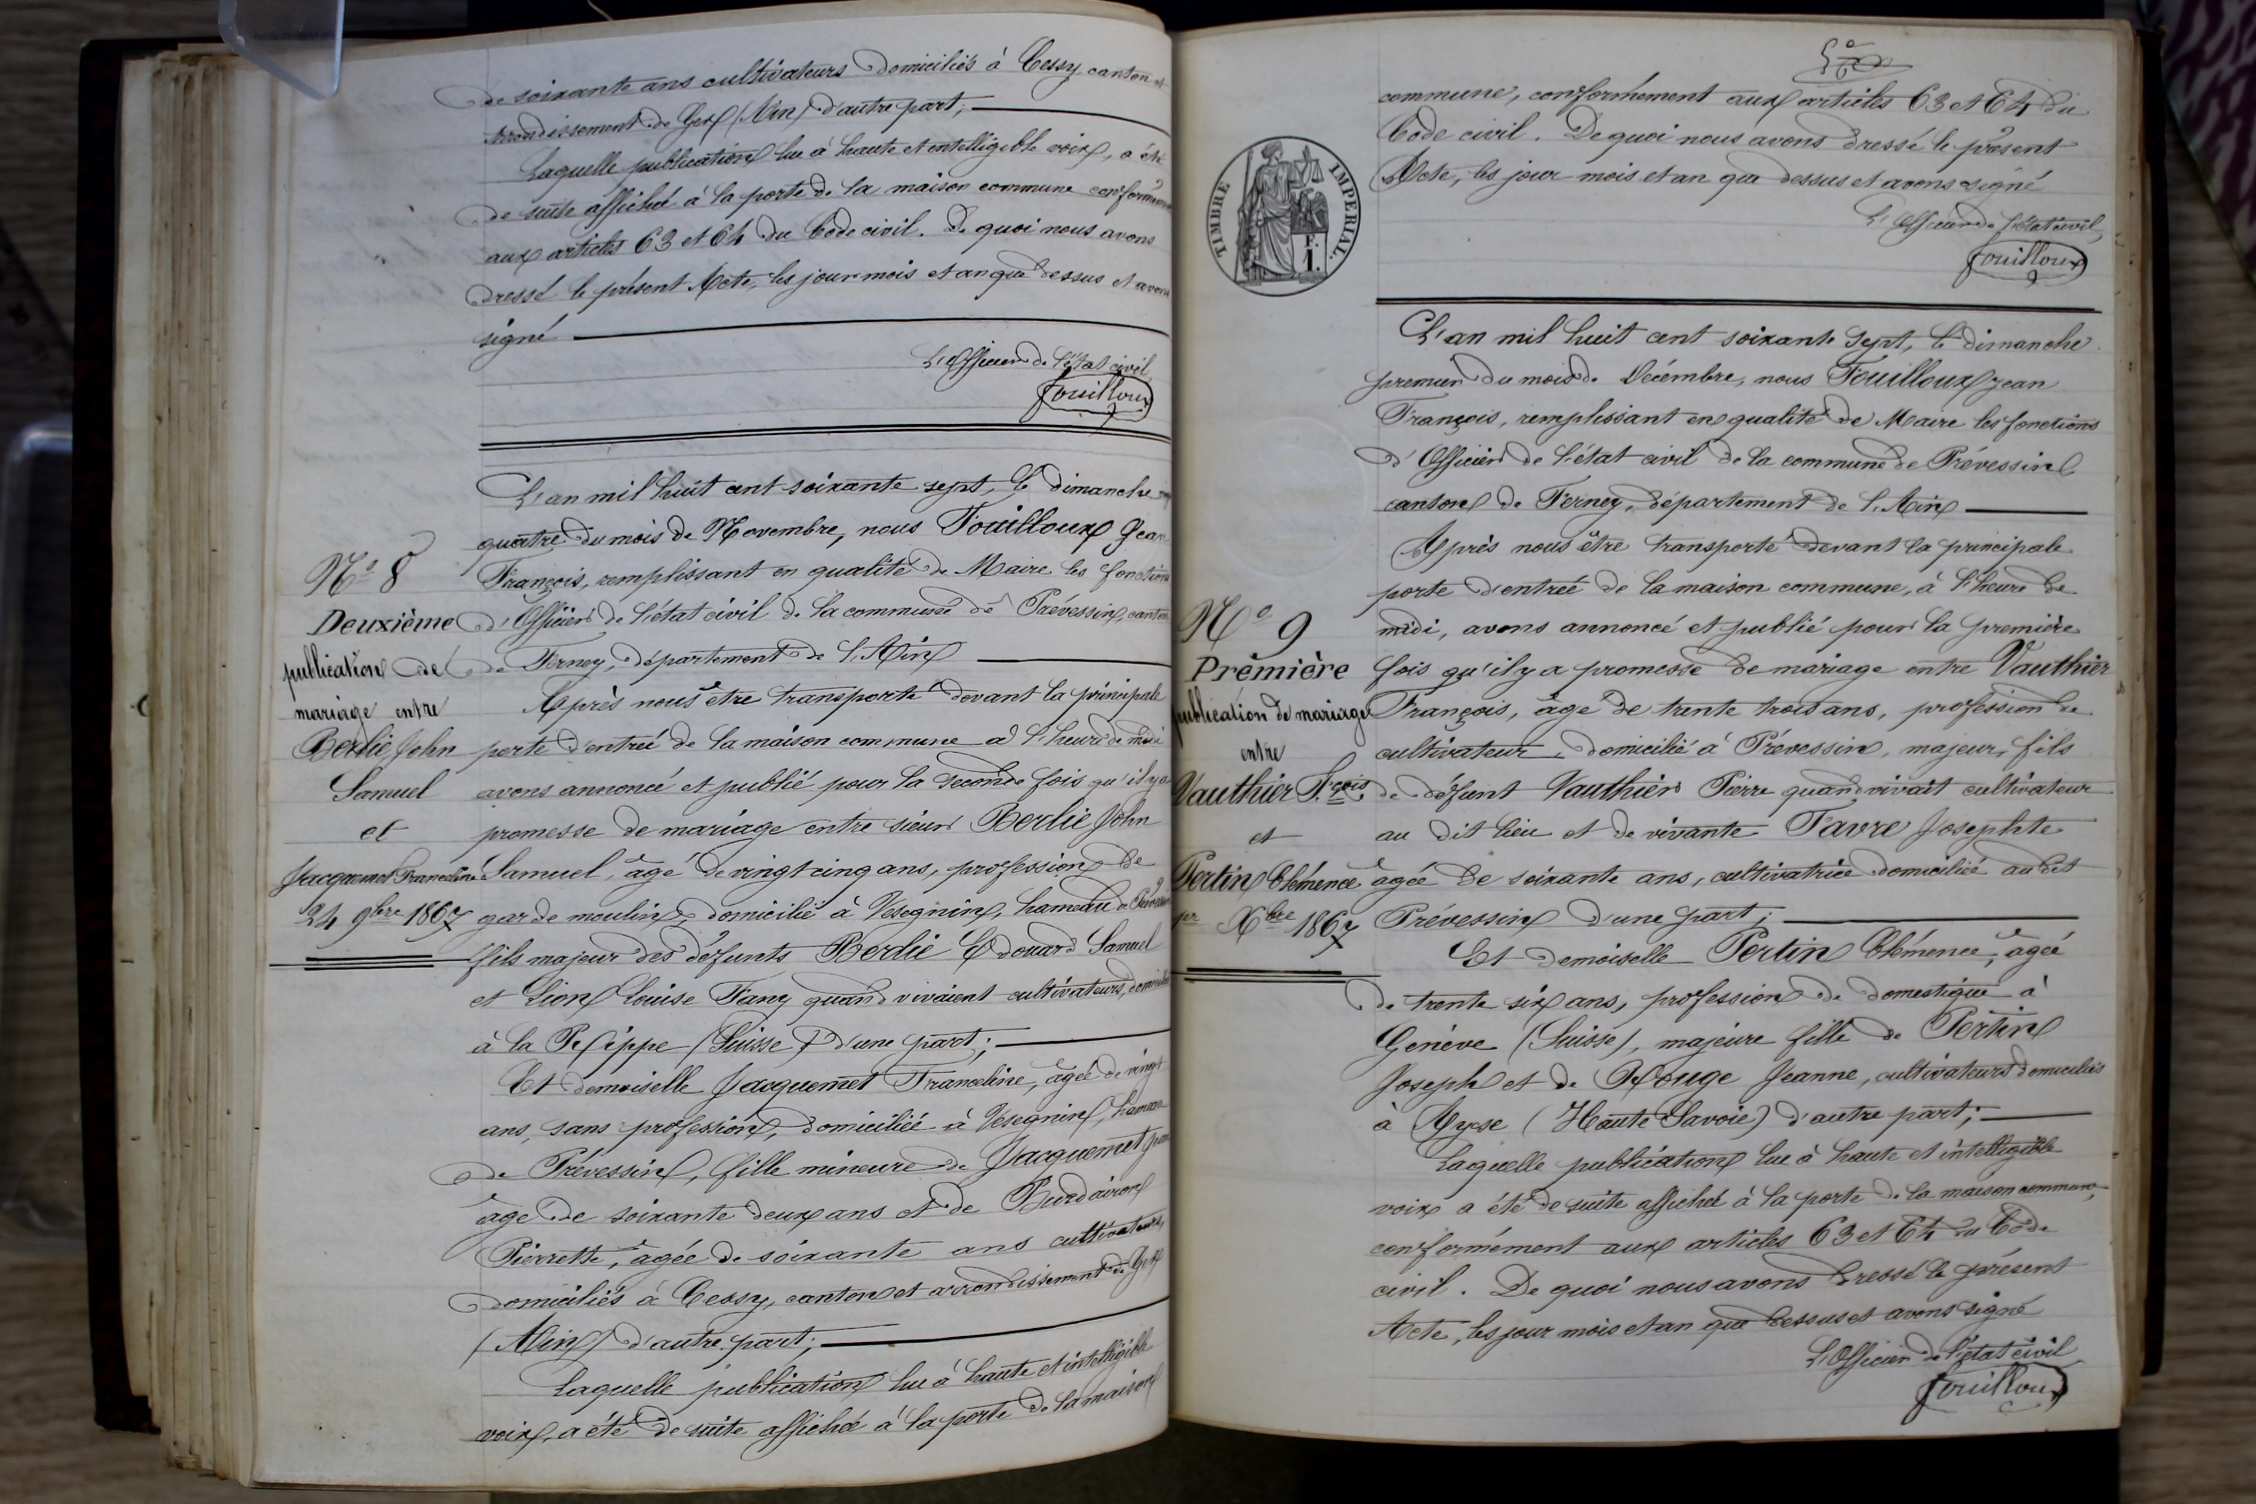 de soixante ans cultivateurs domiciliés à Cessy canton et
arrondissement de Gex (Ain) d'autre part;
Laquelle publication lue à haute et intelligible voix, a été
de suite affichée à la porte de la maison commune conformément
aux articles 63 et 64 du Code civil. De quoi nous avons
dressé le présent Acte, les jour mois et an que dessus et avons
signé
L'Officier de l'état civil
Fouilloux
N° 8
Deuxième
publication de
mariage entre
Berlie John
Samuel
et
Jacquemet Franceline
24 9bre 1867
L'an mil huit cent soixante sept, le dimanche
quatre du mois de Novembre, nous Fouilloux Jean
François, remplissant en qualité de Maire les fonctions
d'Officier de l'état civil de la commune de Prévessin, canton
de Ferney, département de l'Ain
Après nous être transporté devant la principale
porte d'entrée de la maison commune à l'heure de midi
avons annoncé et publié pour la seconde fois qu'il y a
promesse de mariage entre sieur Berlie John
Samuel, âgé de vingt cinq ans, profession de
gar de moulin, domicilié à Vesegnin, hameau de Prévessin
fils majeur des défunts Berlie Edouard Samuel
et Lion Louise Fany quand vivaient cultivateurs, domiciliés
à la Rippe (Suisse) d'une part;
Et demoiselle Jacquemet Franceline, âgée de vingt
ans, sans profession, domiciliée à Vesegnin, hameau
de Prévessin, fille mineure de Jacquemet
âgé de soixante deux ans et de Burdairon
Pierrette, âgée de soixante ans cultivateurs,
domiciliés à Cessy, canton et arrondissement de Gex
(Ain) d'autre part;
Laquelle publication lue à haute et intelligible
voix, a été de suite affichée à la porte de la maison
commune, conformément aux articles 63 et 64 du
Code civil. De quoi nous avons dressé le présent
Acte, les jour mois et an que dessus et avons signé
L'Officier de l'état civil,
Fouilloux
TIMBRE IMPERIAL.
F.
1.
N° 9
Première
publication de mariage
entre
Vauthier Fçois
et
Pertin Clémence
1er Xbre 1867
L'an mil huit cent soixante sept, le dimanche
premier du mois de Décembre, nous Fouilloux Jean
François, remplissant en qualité de Maire les fonctions
d'Officier de l'état civil de la commune de Prévessin
canton de Ferney, département de l'Ain
Après nous être transporté devant la principale
porte d'entrée de la maison commune, à l'heure de
midi, avons annoncé et publié pour la première
fois qu'il y a promesse de mariage entre Vauthier
François, âgé de trente trois ans, profession de
cultivateur, domicilié à Prévessin, majeur, fils
de défunt Vauthier Pierre quand vivait cultivateur
au dit lieu et de vivante Favre Josephte
agée de soixante ans, cultivatrice domiciliée au dit
Prévessin d'une part;
Et demoiselle Pertin Clémence, âgée
de trente six ans, profession de domestique à
Genève (Suisse), majeure fille de Pertin
Joseph et de Rouge Jeanne, cultivateurs domiciliés
à Ayse (Haute Savoie) d'autre part;
Laquelle publication lue à haute et intelligible
voix a été de suite affichée à la porte de la maison commune,
conformément aux articles 63 et 64 du Code
civil. De quoi nous avons dressé le présent
Acte, les jour mois et an que dessus et avons signé
L'Officier de l'état civil
Fouilloux